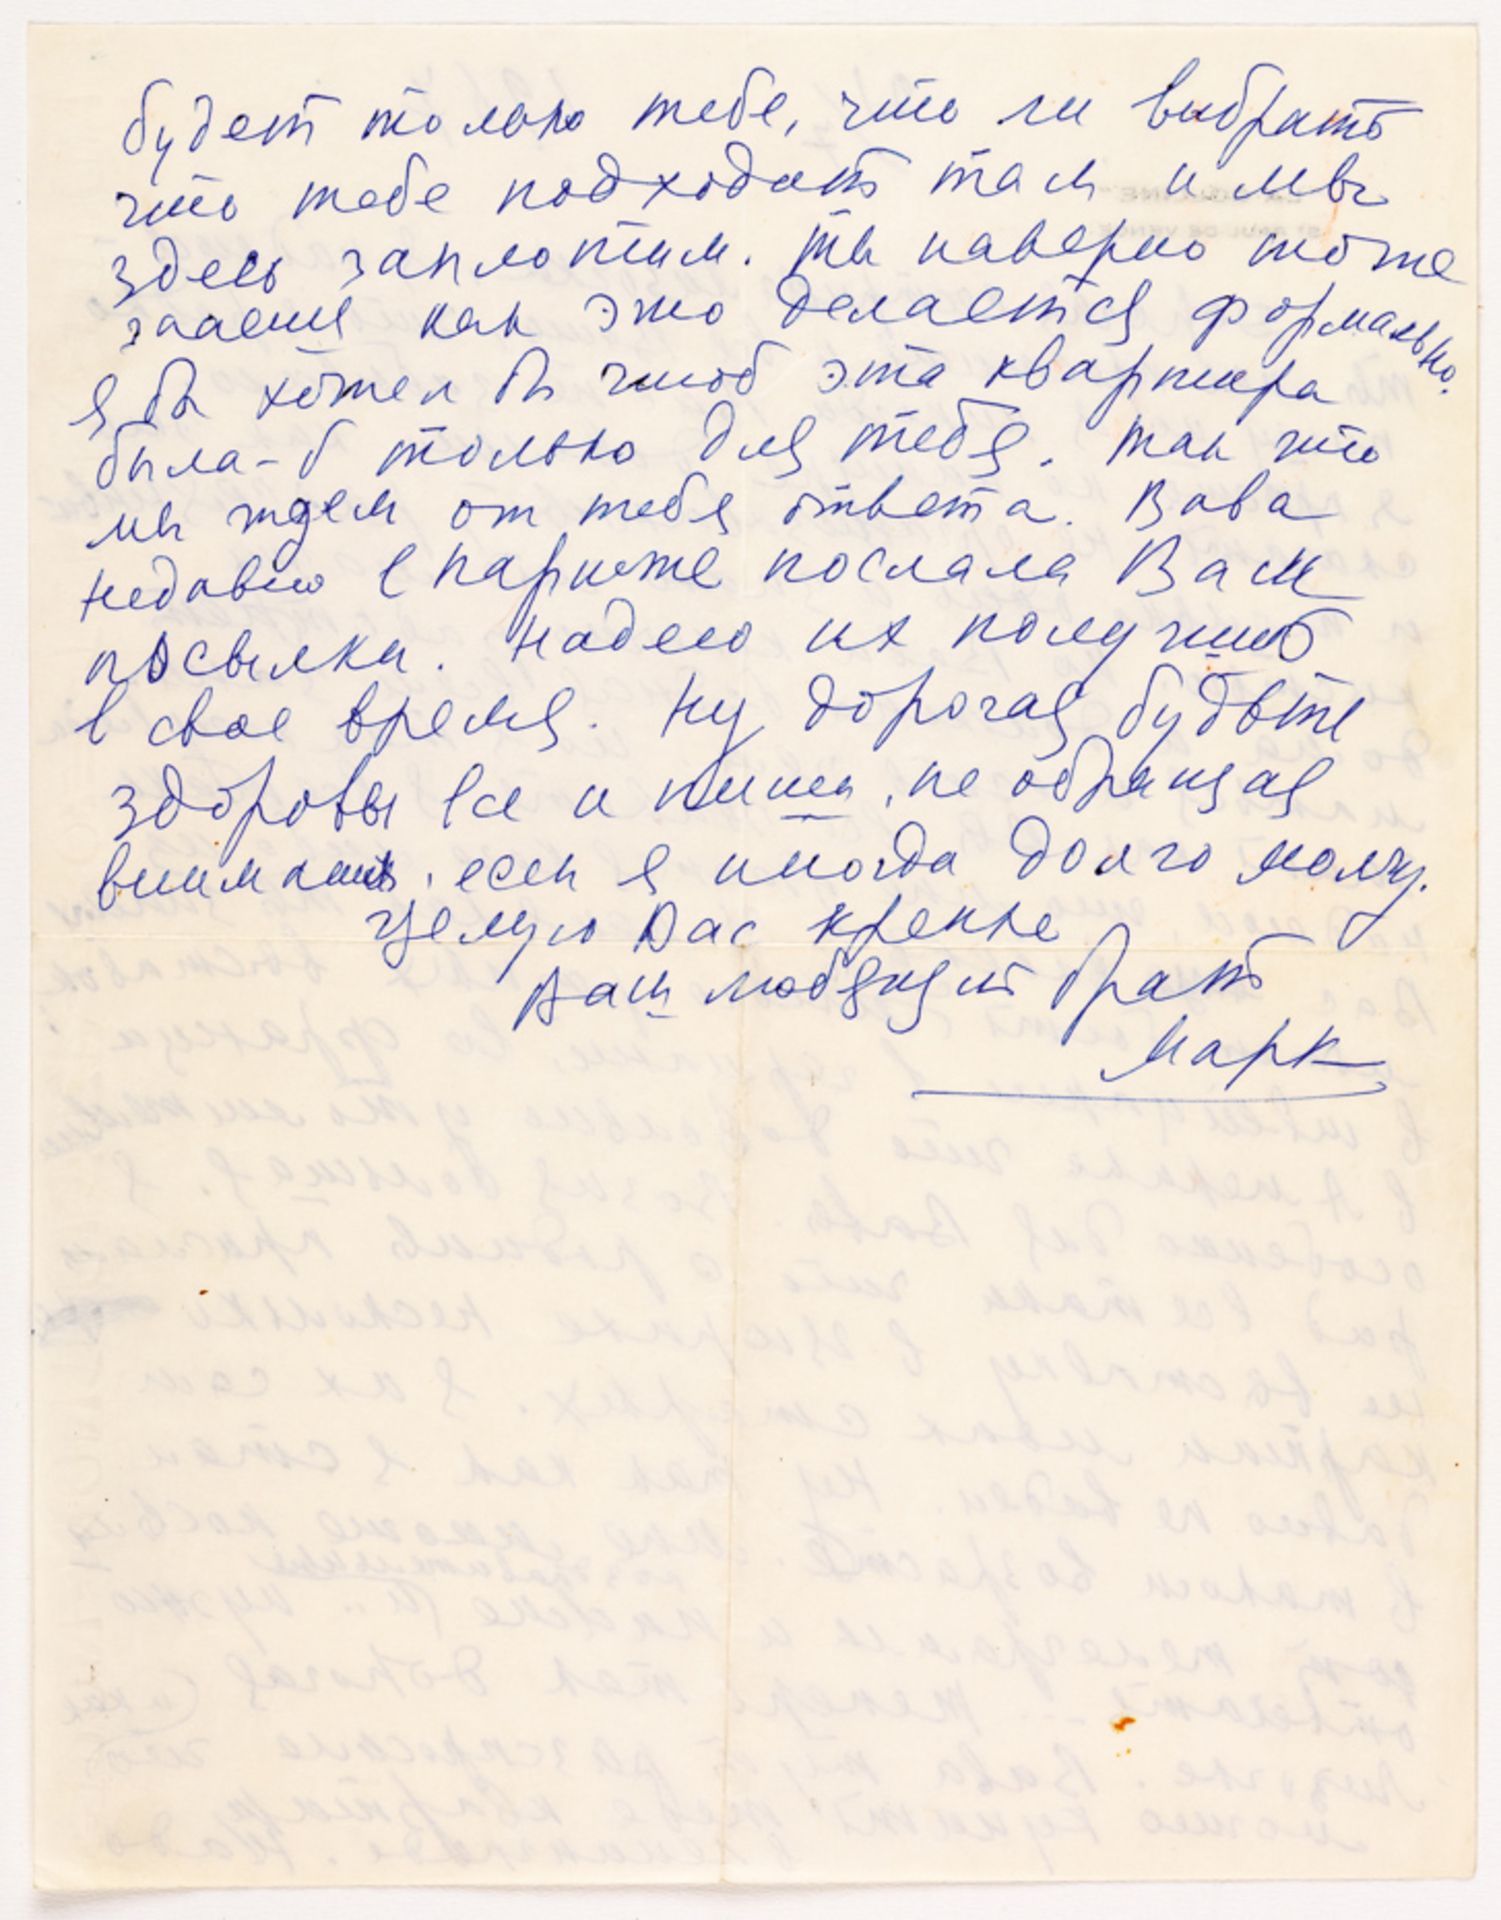 будет только тебе, что ли выбрать
что тебе подходит там и мы
здесь заплотим. ты наверно тоже
знаеш как это делается формально.
я бы хотел бы чтоб эта квартира
была-б только для тебя. так что
мы ждем от тебя ответа. Вава
недавно в париже послала Вам
посылки. надею их получит
в свое время. ну дорогая будьте
здоровы все и пиши, не обращая
внимание, если я иногда долго молчу.
Целую Вас крепко
Ваш любящий брат
Марк